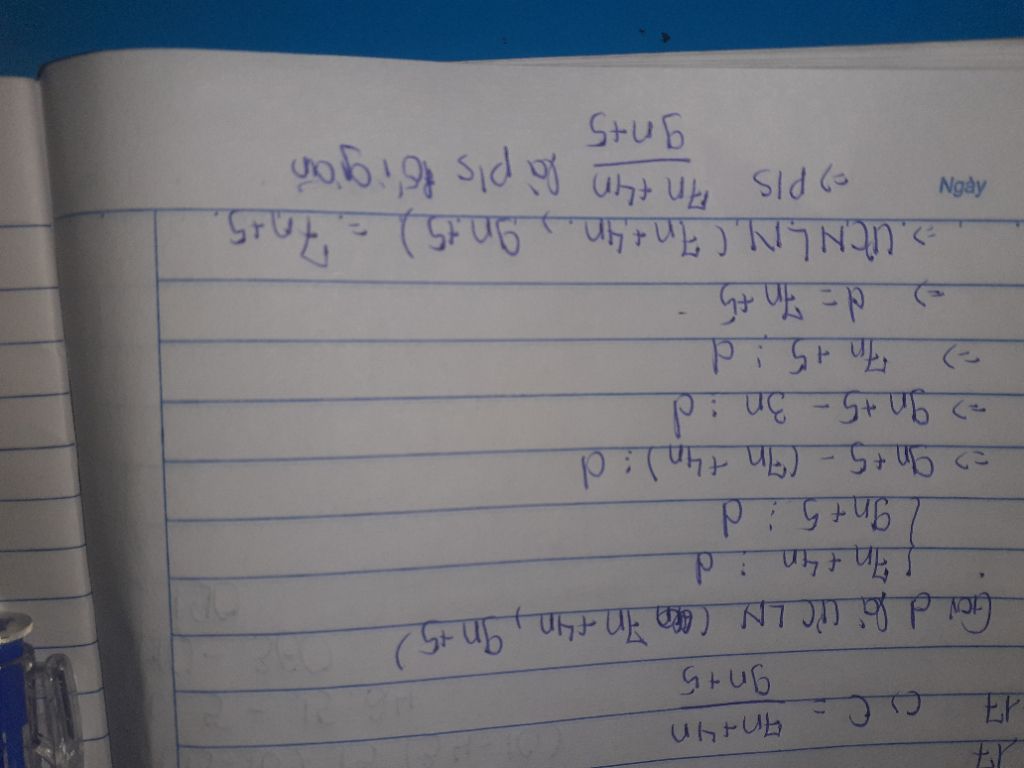 17
17 c) C = 7n+4n / 9n+5
Gọi d là ƯCLN ( 7n+4n, 9n+5)
7n+4n ⋮ d
9n+5 ⋮ d
=> 9n+5 - (7n+4n) ⋮ d
=> 9n+5 - 3n ⋮ d
=> 7n+5 ⋮ d
=> d = 7n+5
=> ƯCNLN (7n+4n, 9n+5) = 7n+5
Ngày
=> P/S 7n+4n / 9n+5 là p/s tối giản